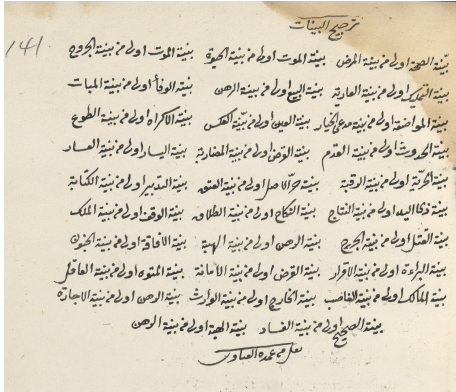 ترجيح البينات
141
بينة الصحة اولى من بينة المرض بينة الموت اولى من بينة الحيوة بينة الموت اولى من بينة الجروح
بينة التمليك اولى من بينة العارية بينة البيع اولى من بينة الرهن بينة الوفا اولى من بينة البات
بينة المواضعة اولى من بينة مدعى الخيار بينة الغبن اولى من بينة العكس بينة الاكراه اولى من بينة الطوع
بينة الحدوث اولى من بينة القدم بينة القرض اولى من بينة المضاربة بينة اليسار اولى من بينة
بينة الحرية اولى من بينة الرقية بينة حر الاصل اولى من بينة العتق بينة التدبير اولى من بينة الكتابة
بينة ذى اليد اولى من بينة النتاج بينة النكاح اولى من بينة الطلاق بينة الوقف اولى من بينة الملك
بينة القتل اولى من بينة الجرح بينة الرهن اولى من بينة الهبة بينة الافاقة اولى من بينة الجنون
بينة البراءة اولى من بينة الاقرار بينة القرض اولى من بينة الامانة بينة المعتوه اولى من بينة العاقل
بينة المالك اولى من بينة الغاصب بينة الخارج اولى من بينة الوارث بينة الرهن اولى من بينة الاجارة
بينة الصحيح اولى من بينة الفساد بينة الهبة اولى من بينة الرهن
نقل من عمدة الفتاوى